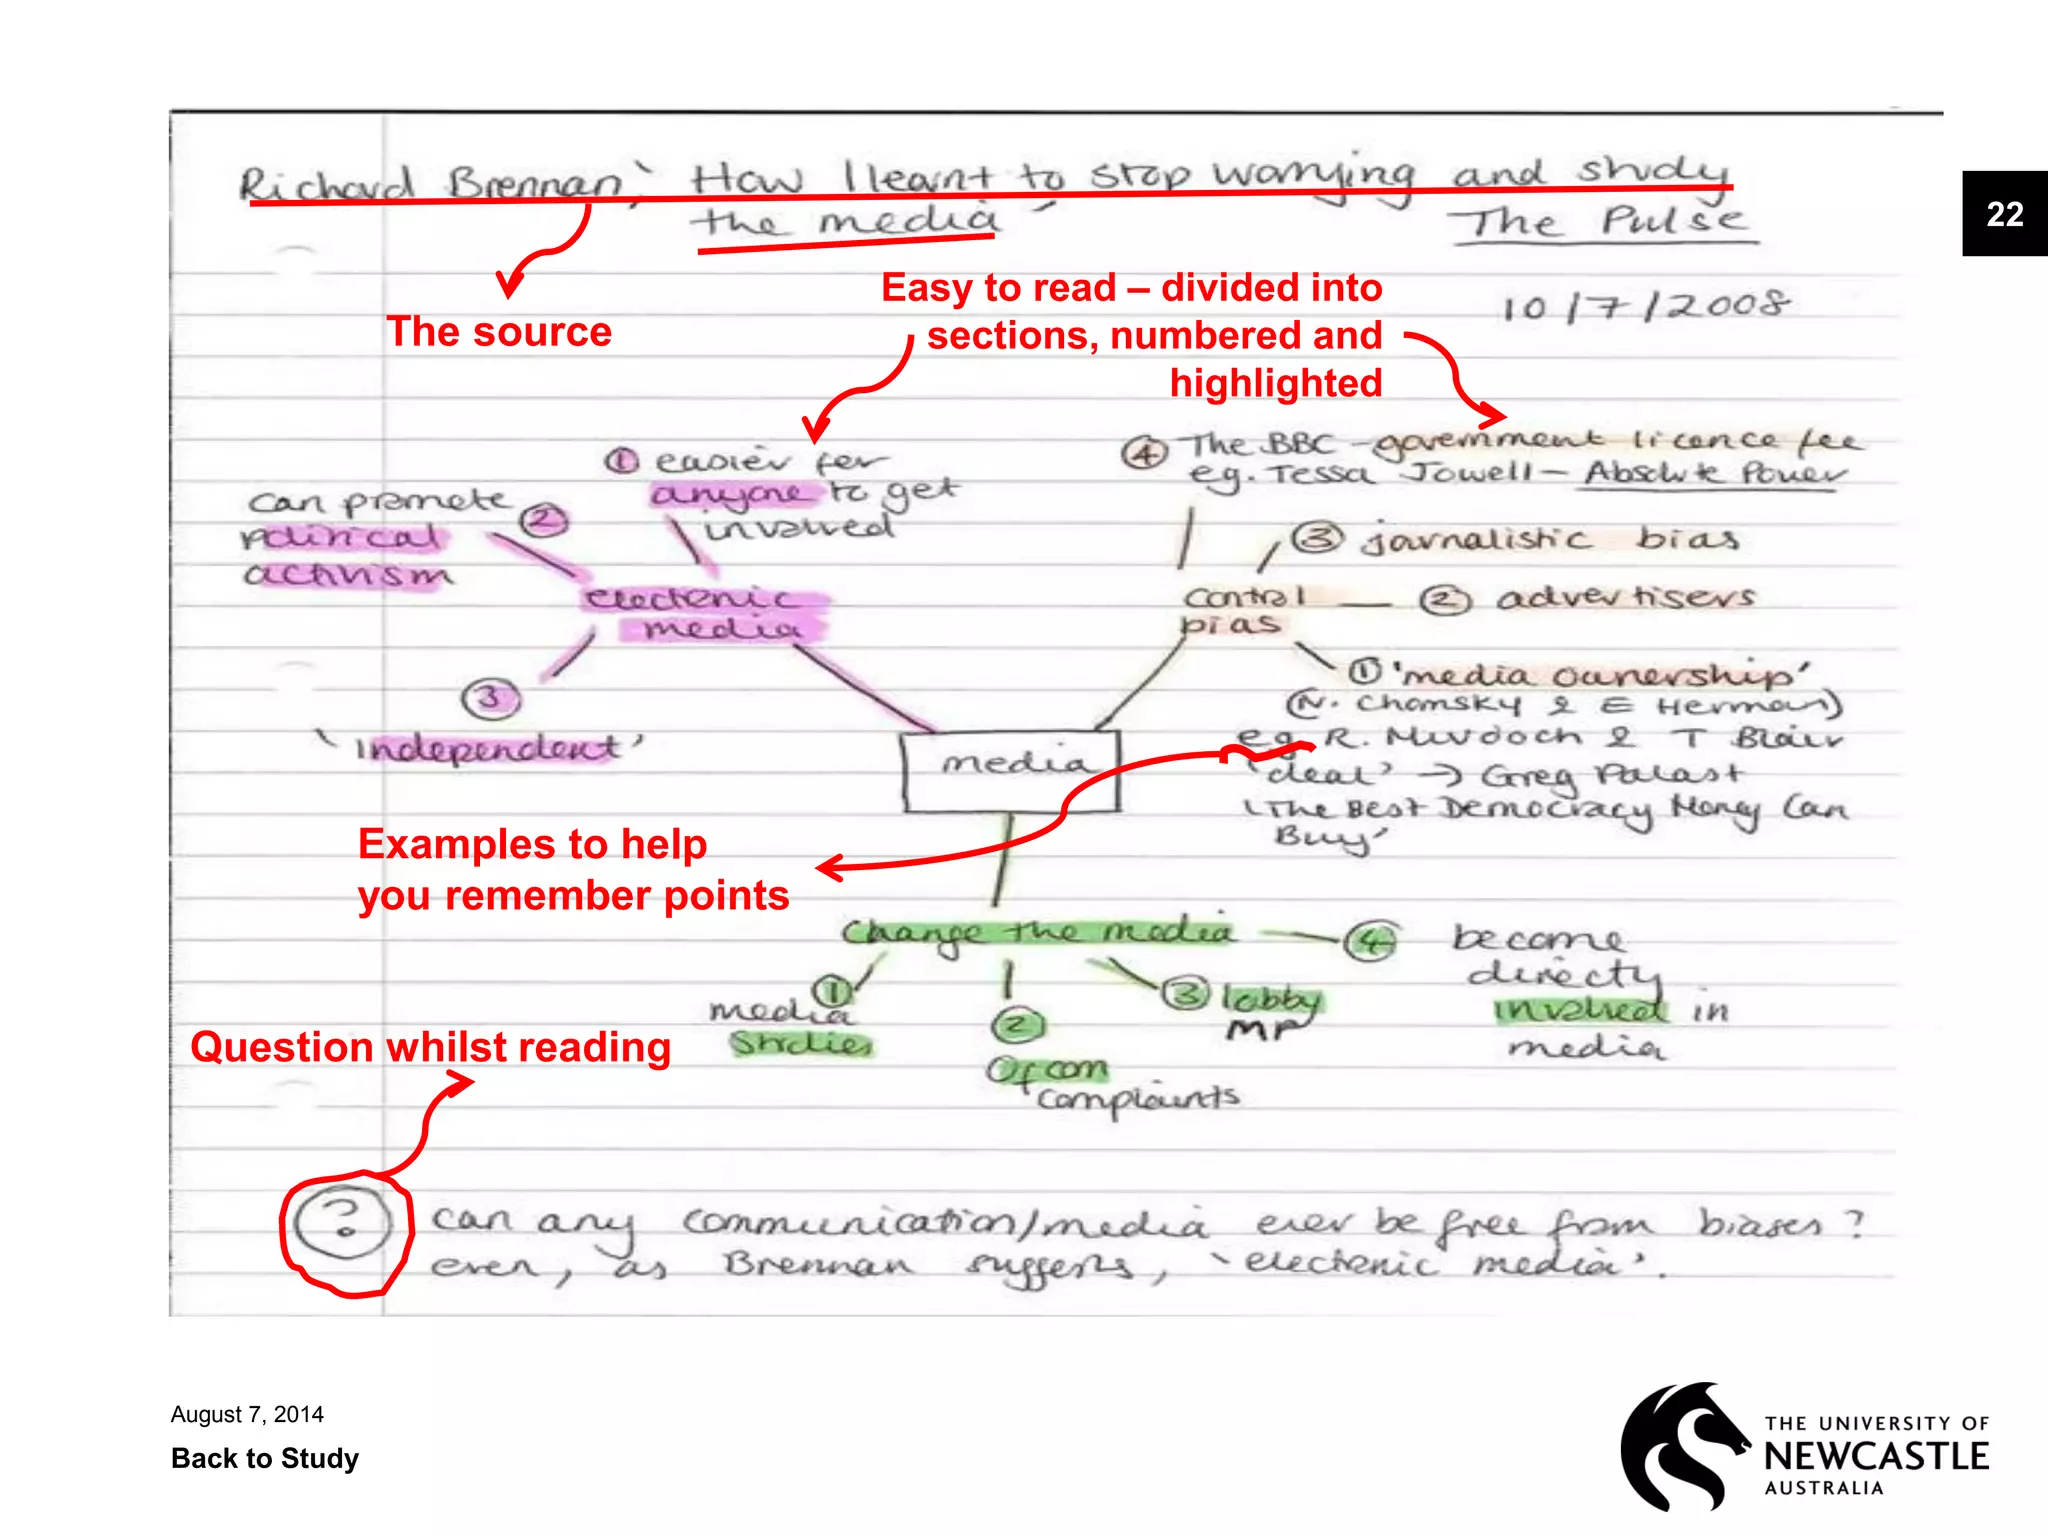 Richard Brennan, 'How I learnt to stop worrying and study
the media'
The Pulse
22
10/7/2008
The source
Easy to read – divided into
sections, numbered and
highlighted
① easier for
anyone to get
involved
can promote ②
political
activism
electronic
media
③
'independent'
④ The BBC – government licence fee
e.g. Tessa Jowell – Absolute Power
③ journalistic bias
control — ② advertisers
bias
① 'media ownership'
(N. Chomsky & E Herman)
e.g R. Murdoch & T Blair
'deal' → Greg Palast
'The Best Democracy Money Can
Buy'
media
Examples to help
you remember points
Change the media
① media
studies
② Ofcom
complaints
③ lobby
MP
④ become
directy
involved in
media
Question whilst reading
? can any communication/media ever be free from biases?
even, as Brennan suggests, 'electronic media'.
August 7, 2014
Back to Study
THE UNIVERSITY OF
NEWCASTLE
AUSTRALIA